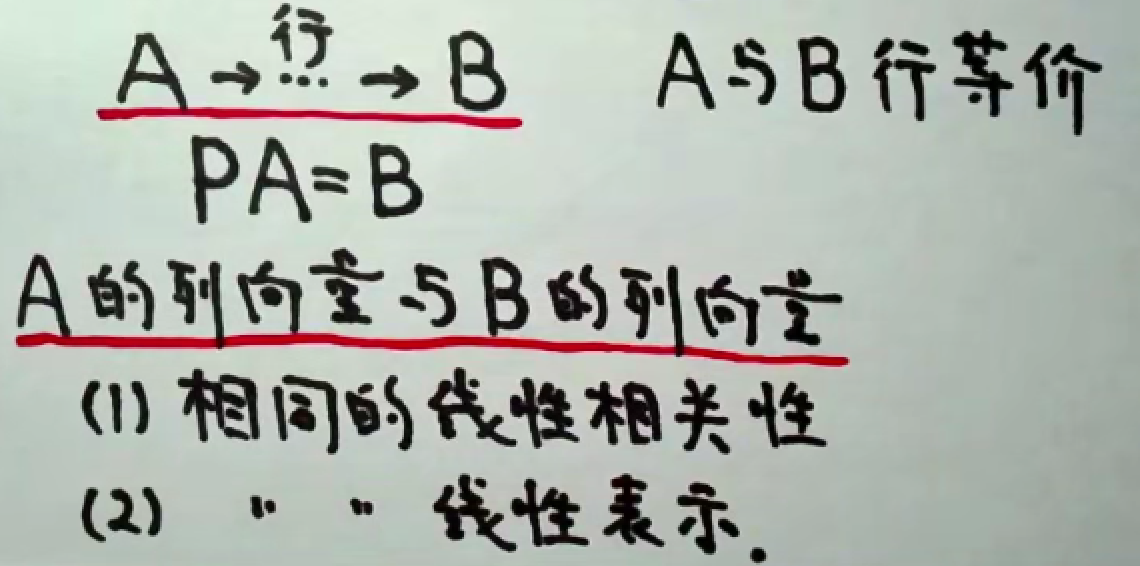 A → 行… → B A与B行等价
PA=B
A的列向量与B的列向量
(1) 相同的线性相关性
(2) 〃 〃 线性表示.